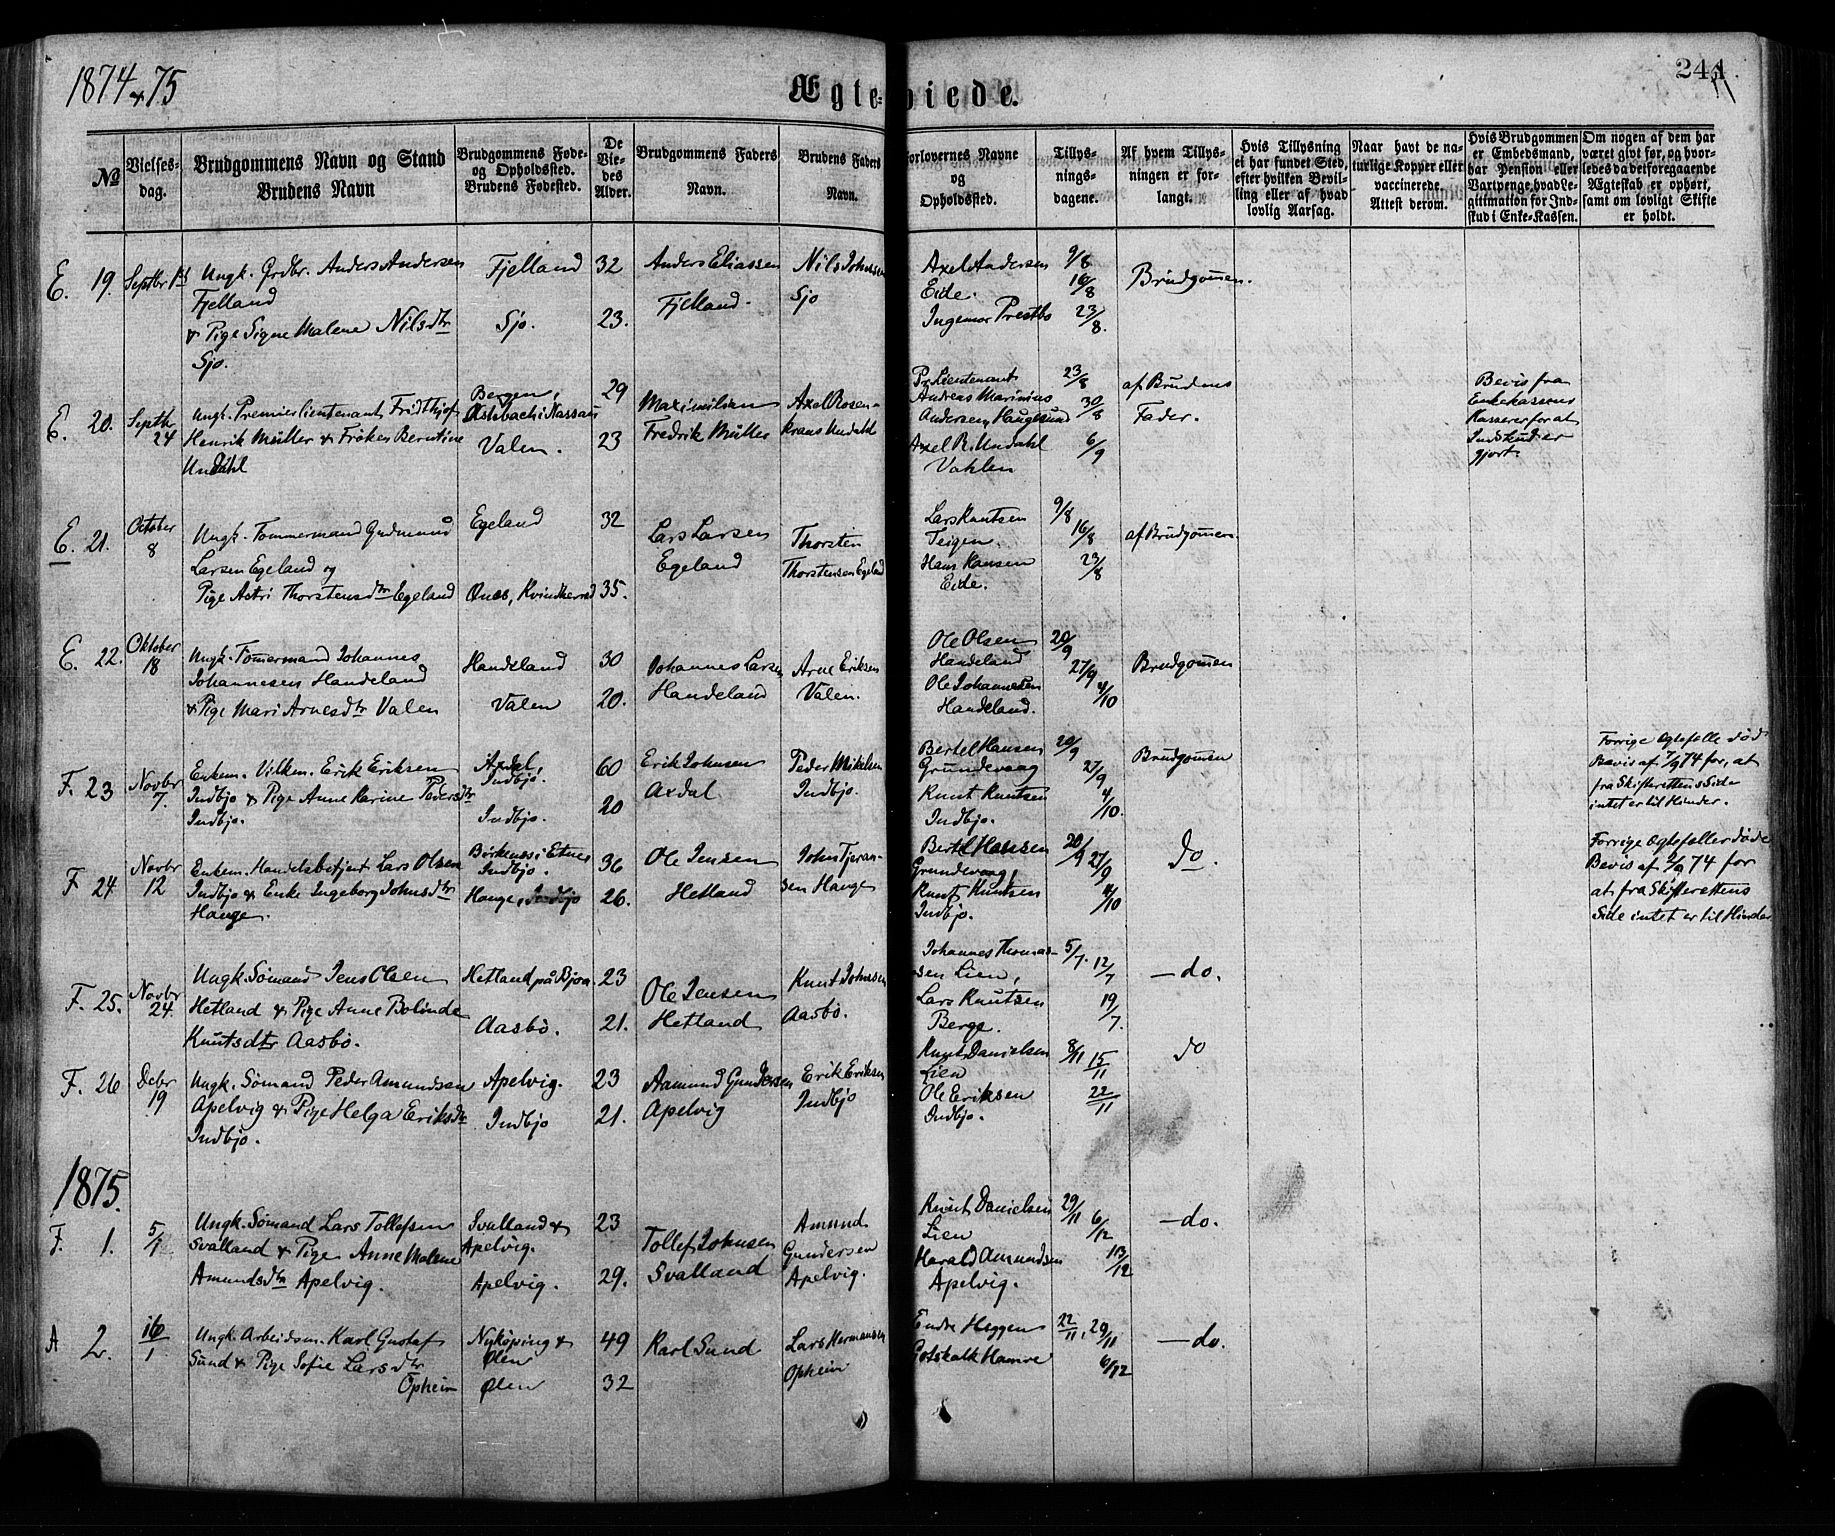 1874 & 75
Ægteviede.
241
№
Vielses-
dag.
Brudgommens Navn og Stand
Brudens Navn
Brudgommens Føde-
og Opholdssted.
Brudens Fødested.
De
Vie-
des
Alder.
Brudgommens Faders
Navn.
Brudens Faders
Navn.
Forlovernes Navne
og
Opholdssted.
Tillys-
nings-
dagene.
Af hvem Tillys-
ningen er for-
langt.
Hvis Tillysning
ei har fundet Sted,
efter hvilken Bevil-
ling eller af hvad
lovlig Aarsag.
Naar havt de na-
turlige Kopper eller
vaccinerede.
Attest derom.
Hvis Brudgommen
er Embedsmand,
har Pension eller
Vartpenge, hvad Le-
gitimation for Ind-
skud i Enke-Kassen.
Om nogen af dem har
været givt før, og hvor-
ledes da det foregaaende
Ægteskab er ophørt,
samt om lovligt Skifte
er holdt.
E. 19. Septbr
Ungk. Grdbr. Anders Andersen
Fjelland
& Pige Signe Malene Nilsdtr
Sjo.
Fjelland 32
Sjo. 23.
Anders Eliassen
Fjelland.
Nils Johnsen
Sjo
Axel Andersen
Eide.
Ingemor Prestbo
9/8
16/8
23/8.
Brudgommen.
E. 20. Septbr
24
Ungk. Premierlieutenant Fridthjof
Henrik Müller & Frøken Berntine
Undahl
Bergen, 29
i Nassau
Valen. 23
Maximilian
Fredrik Müller
Axel Rosen-
krans Undahl
Pr. Lieutenant
Andreas Marinius
Andersen, Haugesund
Axel R. Undahl
Vahlen
23/8
30/8
6/9
af Brudens
Fader.
Bevis fra
Enkekassens
Kasserer for at
Indskud er
gjort.
E. 21. October
8
Ungk. Tømmermand Gudmund
Larsen Egeland og
Pige Astri Thorstensdtr Egeland
Egeland 32
Ønes, Kvindherred 35.
Lars Larsen
Egeland
Thorsten
Thorstensen Egeland
Lars Knutsen
Teigen.
Hans Hansen
Eide.
9/8
16/8
23/8
af Brudgommen.
E. 22. Oktober
18
Ungk. Tømmermand Johannes
Johannesen Handeland
& Pige Mari Arnesdtr Valen
Handeland 30
Valen 20.
Johannes Larsen
Handeland
Arne Eriksen
Valen.
Ole Olsen
Handeland
Ole Johannesen
Handeland.
20/9
27/9
4/10
Brudgommen
F. 23 Novbr
7.
Enkem. Vilkm. Erik Eriksen
Indbjo & Pige Anne Karine Pedersdtr
Indbjo.
Axdal, 60
Indbjo.
Indbjo. 20
Erik Johnsen
Axdal
Peder Mikelsen
Indbjo.
Bertel Hansen
Grundevaag
Knut Knutsen
Indbjo.
20/9
27/9
4/10.
Brudgommen
Forrige Ægtefelle død
Bevis af 7/9 74 for, at
fra Skifterettens Side
intet er til Hinder.
F 24. Novbr
12
Enkem. Handelsbetjent Lars Olsen
Indbjo & Enke Ingeborg Johnsdtr
Hauge.
Birkenes i Etne 36
Indbjo.
Hauge, Indbjo 26.
Ole Jensen
Hetland
John Tjeran-
sen Hauge
Bertel Hansen
Grundevaag,
Knut Knutsen
Indbjo.
20/9 27/9
4/10
do.
Forrige Ægtefeller døde
Bevis af 2/9 74 for
at fra Skifterettens
Side intet er til Hinder
F. 25. Novbr
24.
Ungk. Sømand Jens Olsen
Hetland & Pige Anne Bolinde
Knutsdtr Aasbø.
Hetland på Bjoa. 23
Aasbø. 21.
Ole Jensen
Hetland
Knut Johnsen
Aasbø.
Johannes Thomas-
sen Lien,
Lars Knutsen
Berge.
5/7. 12/7
19/7.
— do.
F. 26 Debr
19
Ungk. Sømand Peder Amundsen
Apelvig & Pige Helga Eriksdtr
Indbjo.
Apelvig. 23
Indbjo 21.
Aamund Gundersen
Apelvig
Erik Eriksen
Indbjo
Knut Danielsen
Lien
Ole Eriksen
Indbjo.
8/11 15/11
22/11
do
1875.
F. 1. 5/1
Ungk. Sømand Lars Tollefsen
Svalland & Pige Anne Malene
Amundsdtr Apelvig.
Svalland & 23
Apelvig.
Apelvig. 29.
Tollef Johnsen
Svalland
Amund
Gundersen
Apelvig.
Knut Danielsen
Lien
Harald Amundsen
Apelvig.
29/11 6/12
13/12
— do.
A 2. 16/1
Ungk. Arbeidsm. Karl Gustaf
Sund & Pige Sofie Larsdtr
Opheim
Nykøping & 49
Ølen
Ølen 32
Karl Sund
Lars Hermansen
Opheim
Endre Heggen
Gotskalk Hamre
22/11, 29/11
6/12
— do.